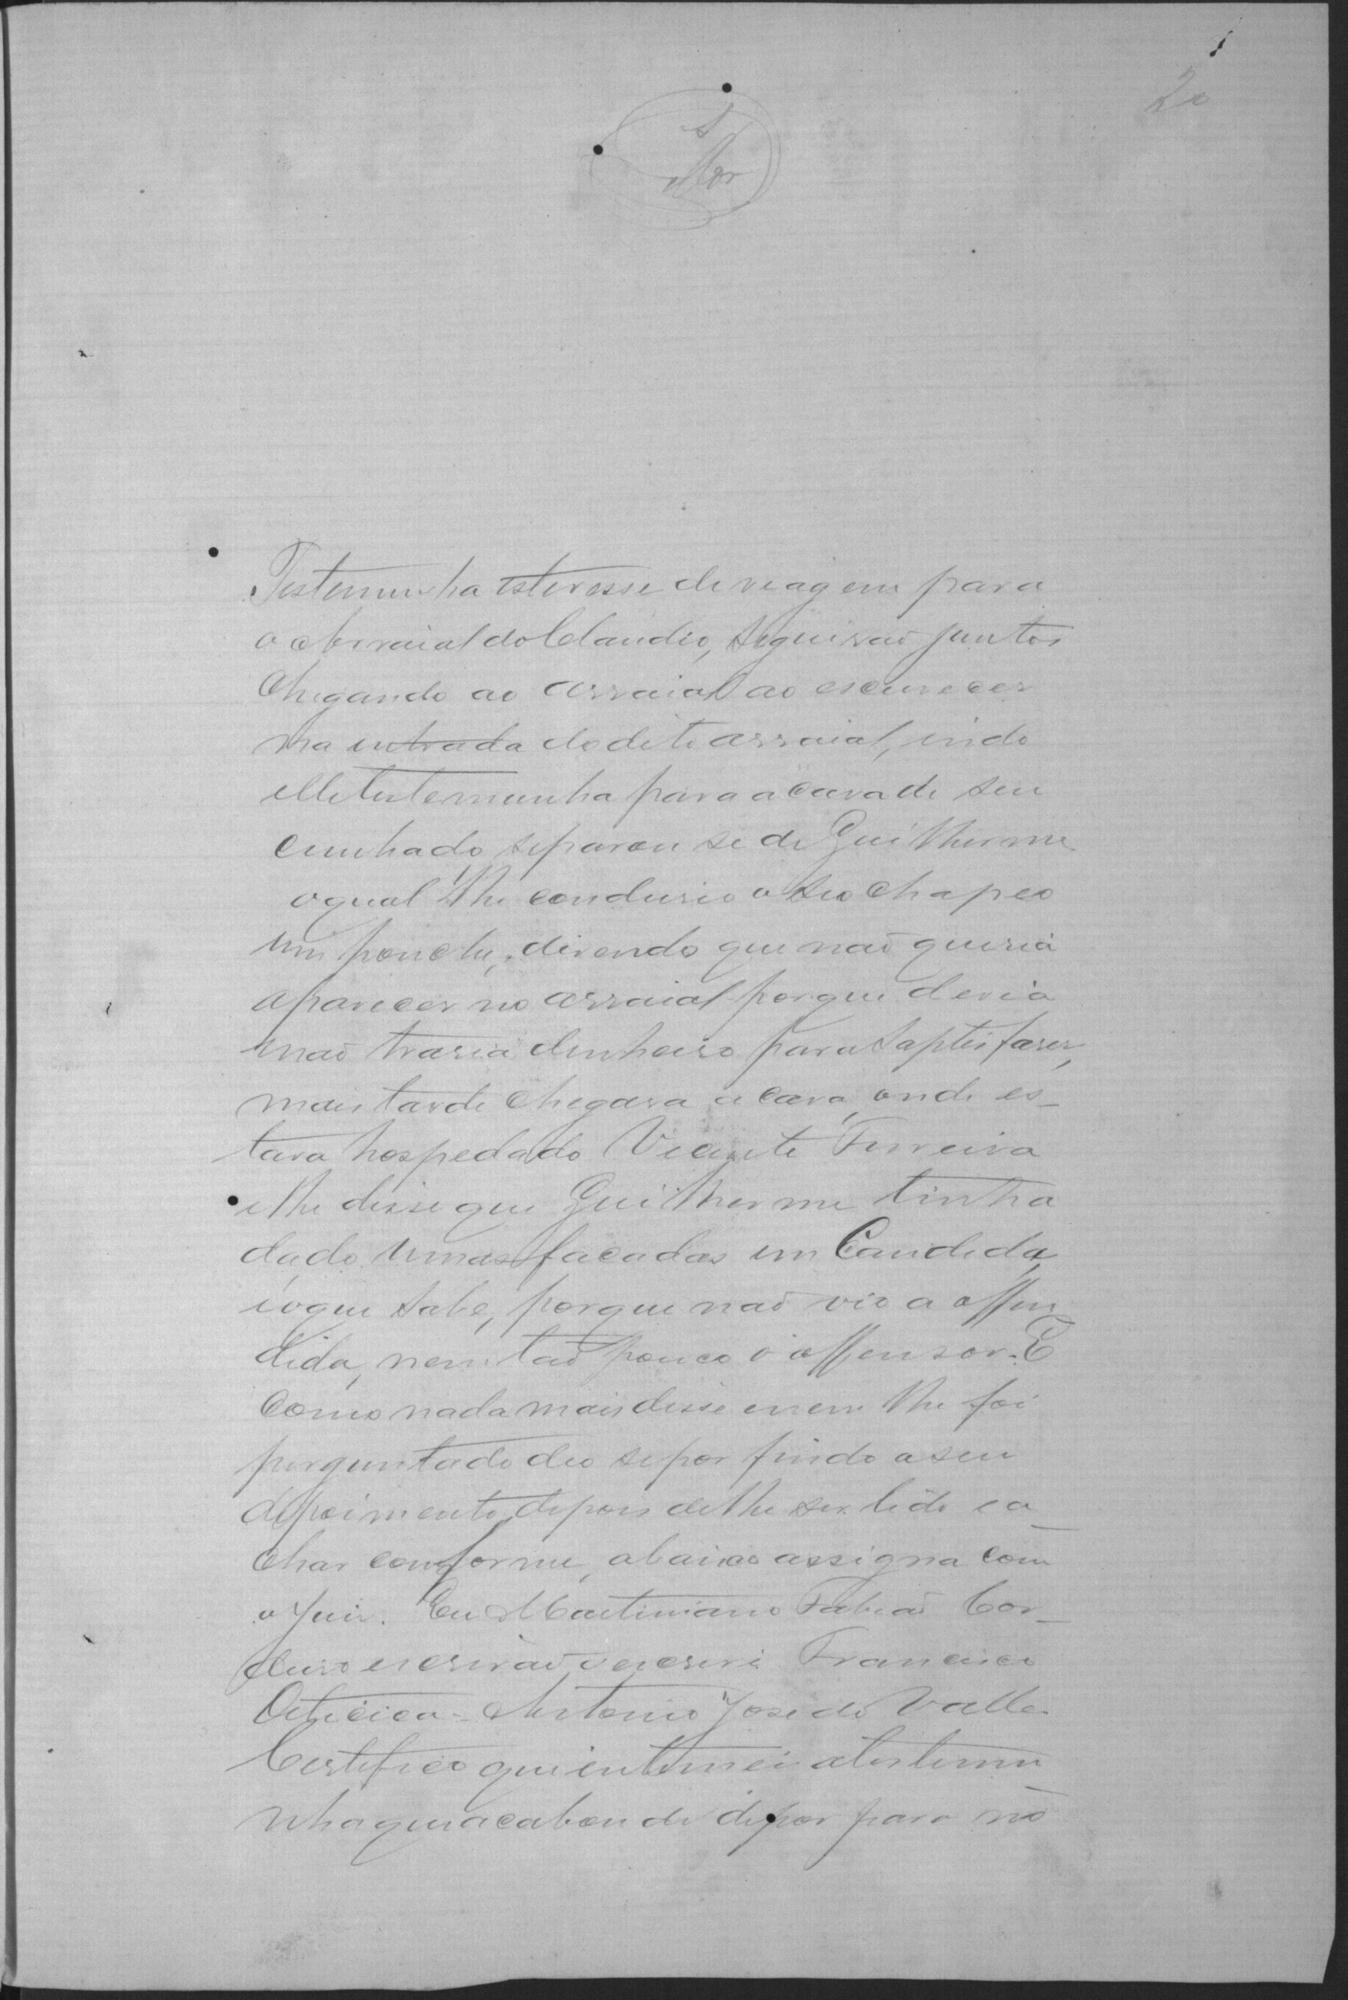 20
Testemunha estivesse de viagem para
o Arraial do Claudio, seguirão juntos
Chegando ao arraial ao escurecer
na entrada do dito arraial, indo
elle testemunha para a casa de seu
cunhado separou se de Guilherme
o qual lhe condusio o seo chapeo
um ponche, disendo que não queria
aparecer no arraial porque devia
e não trasia dinheiro para saptisfaser,
mais tarde chegara a casa, onde es_
tava hospedado Vicente Ferreira
e lhe disse que Guilherme tinha
dado umas facadas em Candida,
é o que sabe, porque não vio a offen
dida, nem tão pouco o offensor. E
como nada mais disse e nem lhe foi
perguntado deo se por findo o seu
depoimento, depois de lhe ser lido e a_
char conforme, abaixo assigna com
o Juiz. Eu Martiniano Fabião Cor_
deiro escrivão o escrevi. Francisco
Antonio José do Valle.
Certifico que intimei a testemu
nha que acabou de depor para no